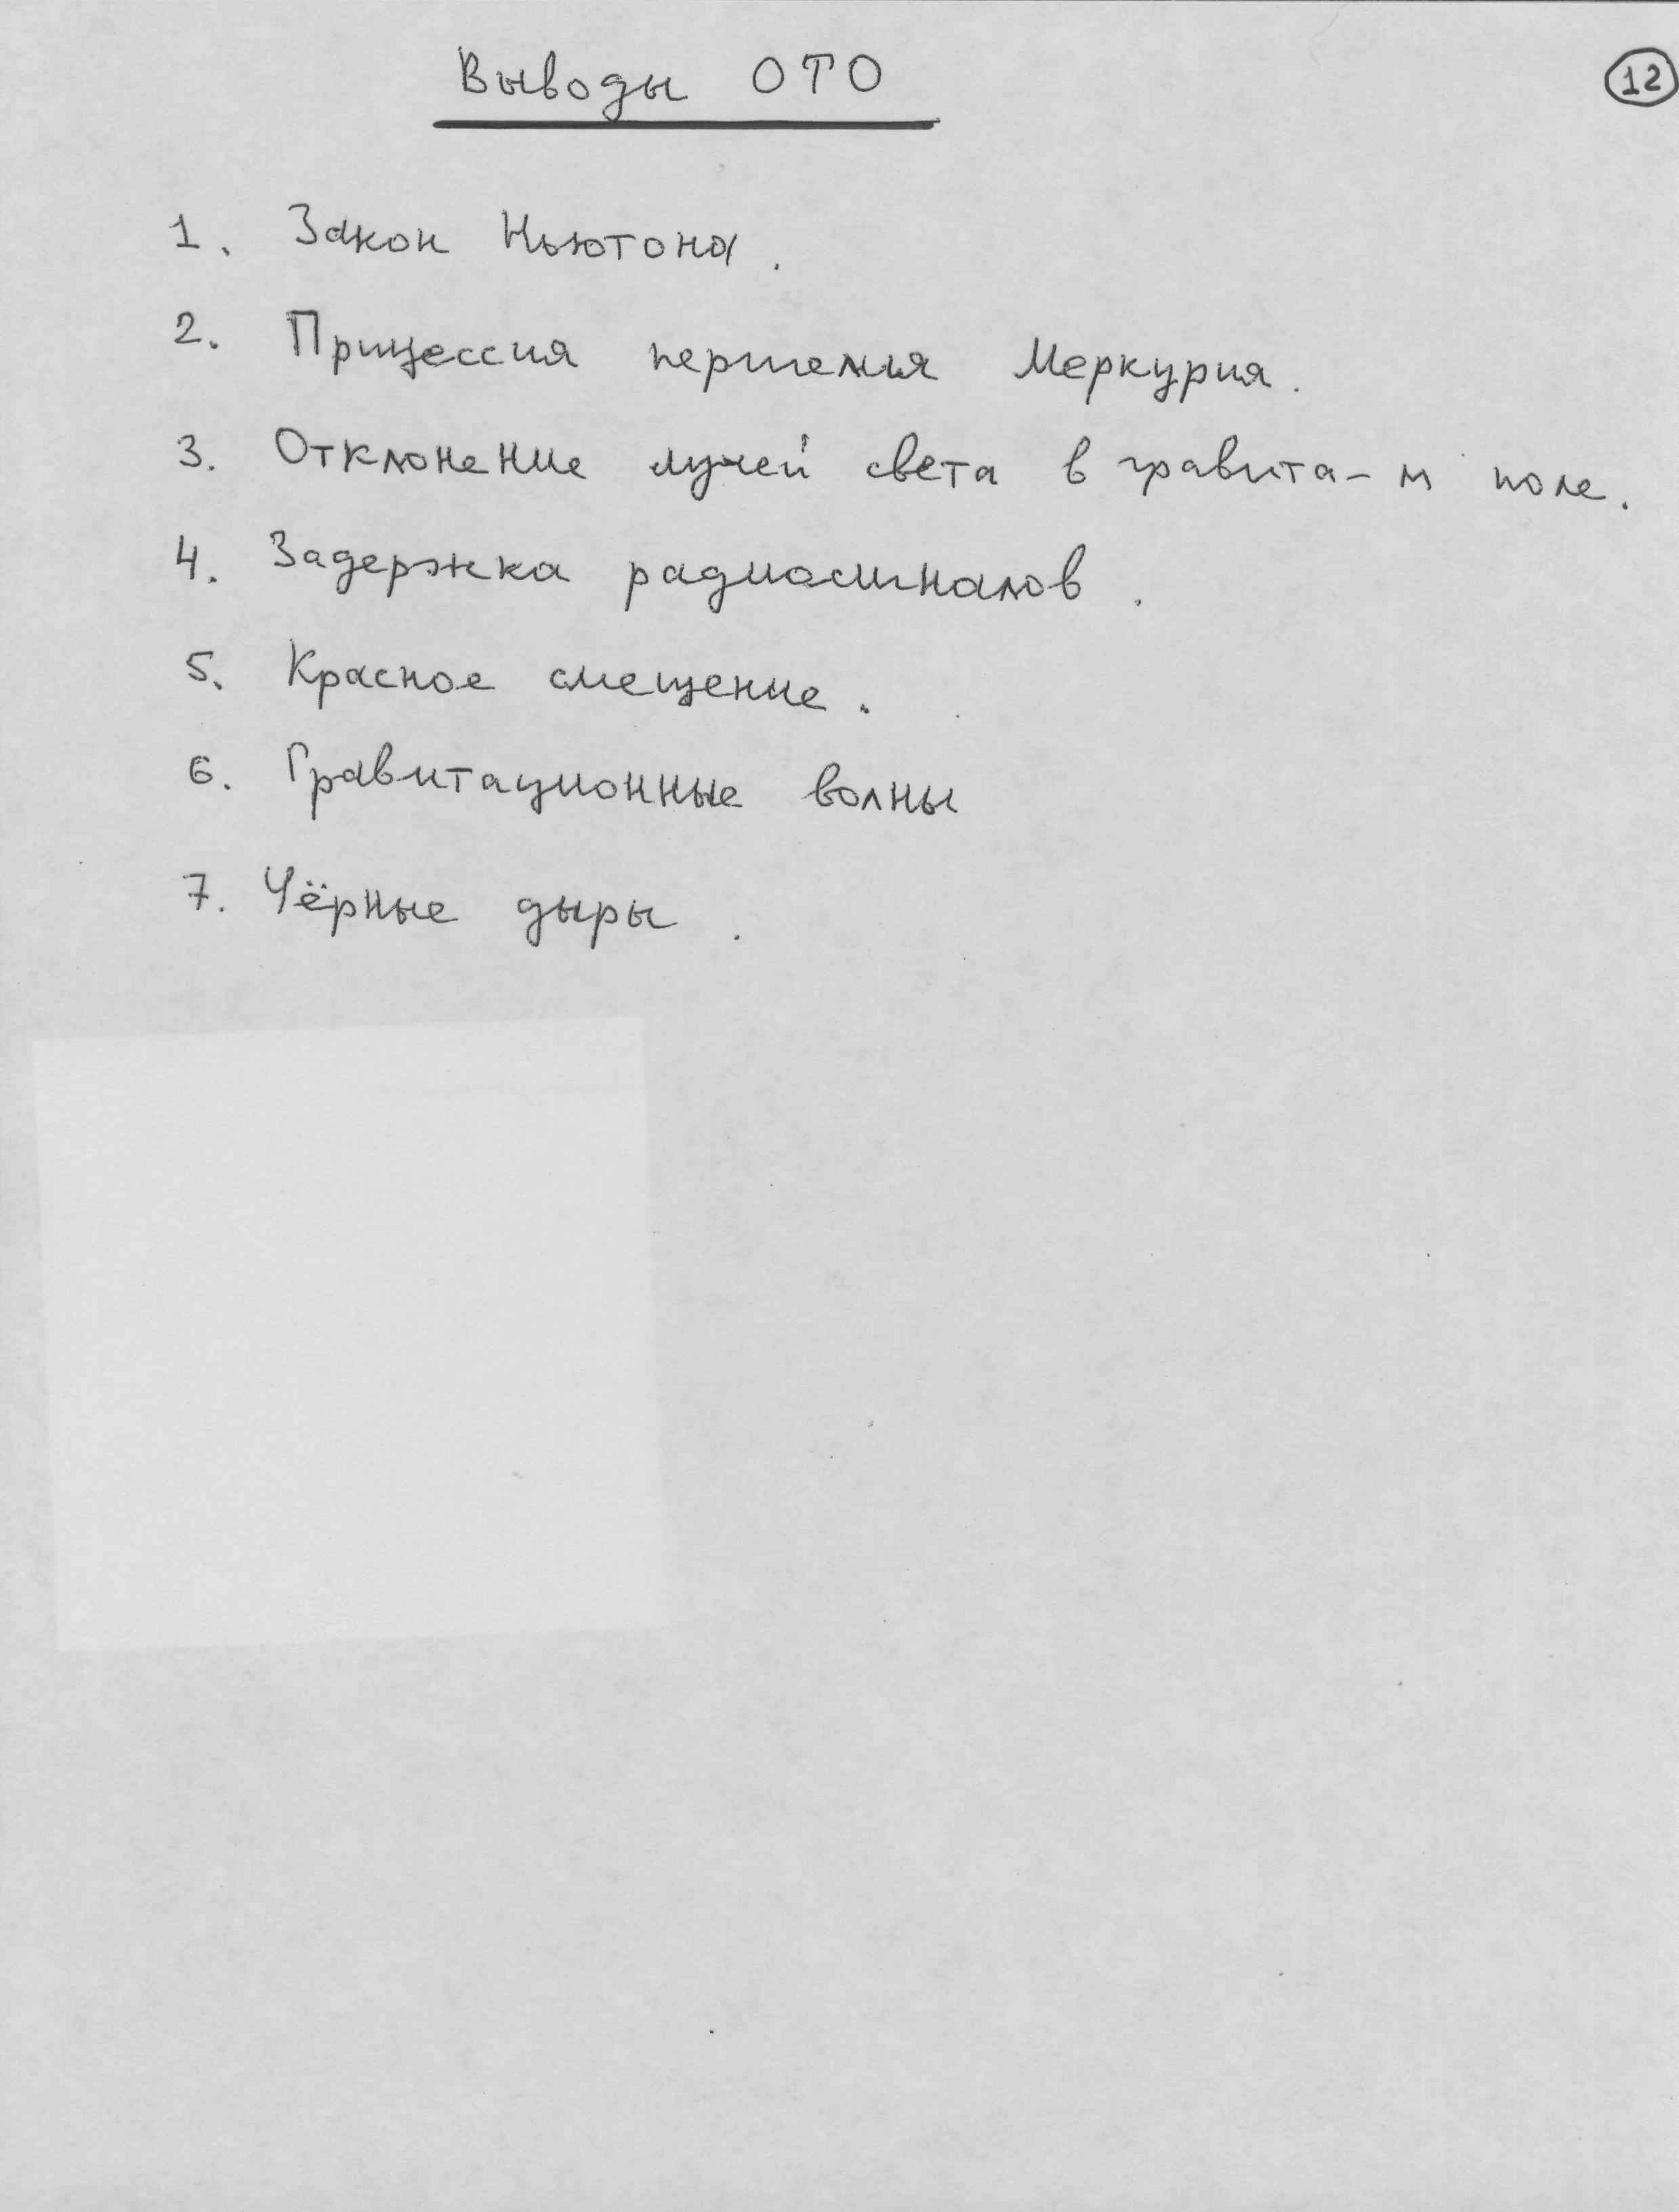 Выводы ОТО
12
1. Закон Ньютона.
2. Прицессия перигелия Меркурия.
3. Отклонение лучей света в гравита-м поле.
4. Задержка радиосигналов.
5. Красное смещение.
6. Гравитационные волны
7. Чёрные дыры.